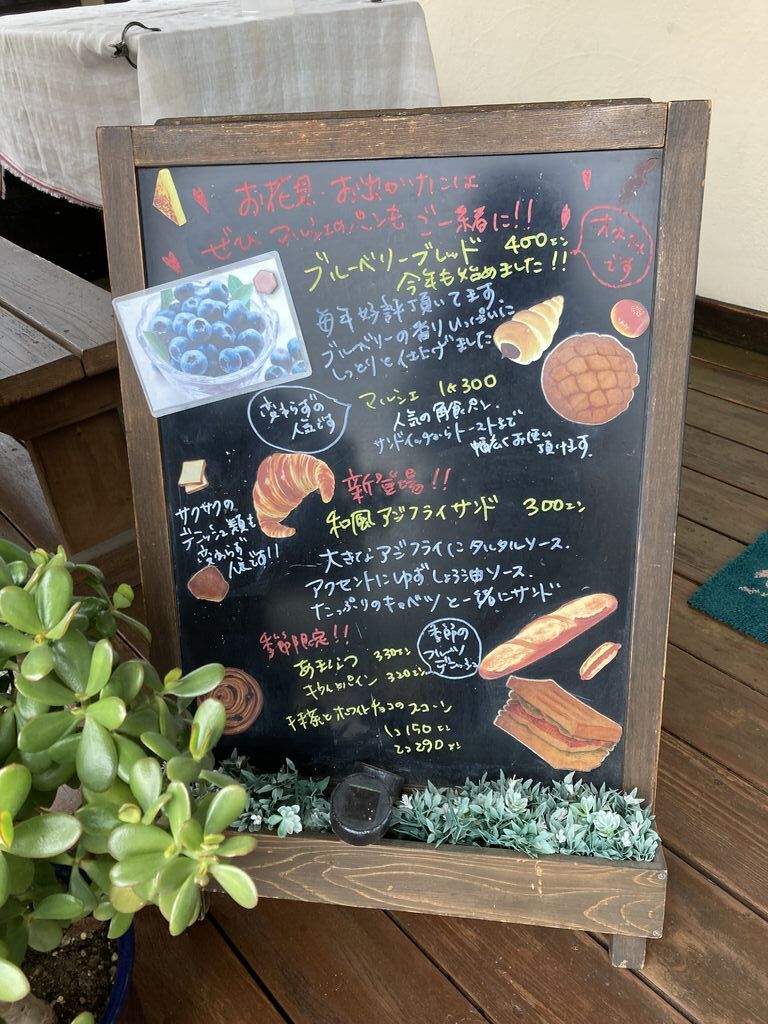 お花見・お出かけに
ぜひマルシェのパンもご一緒に!!
オススメです
ブルーベリーブレッド 400エン
今年も始めました!!
毎年好評頂いてます。
ブルーベリーの香りいっぱいに
しっとりと仕上げました
変わらずの人気です
マルシェ 1斤300
人気の角食パン。
サンドイッチからトーストまで
幅広くお使い頂けます。
新登場!!
和風アジフライサンド 300エン
サクサクの
デニッシュ類も
変わらず
人気です!!
大きなアジフライにタルタルソース。
アクセントにゆずしょう油ソース。
たっぷりのキャベツと一緒にサンド
季節限定!!
季節のフルーツデニッシュ
あまなつ 330エン
キウイとパイン 320エン
抹茶とホワイトチョコのスコーン
1コ150エン
2コ290エン